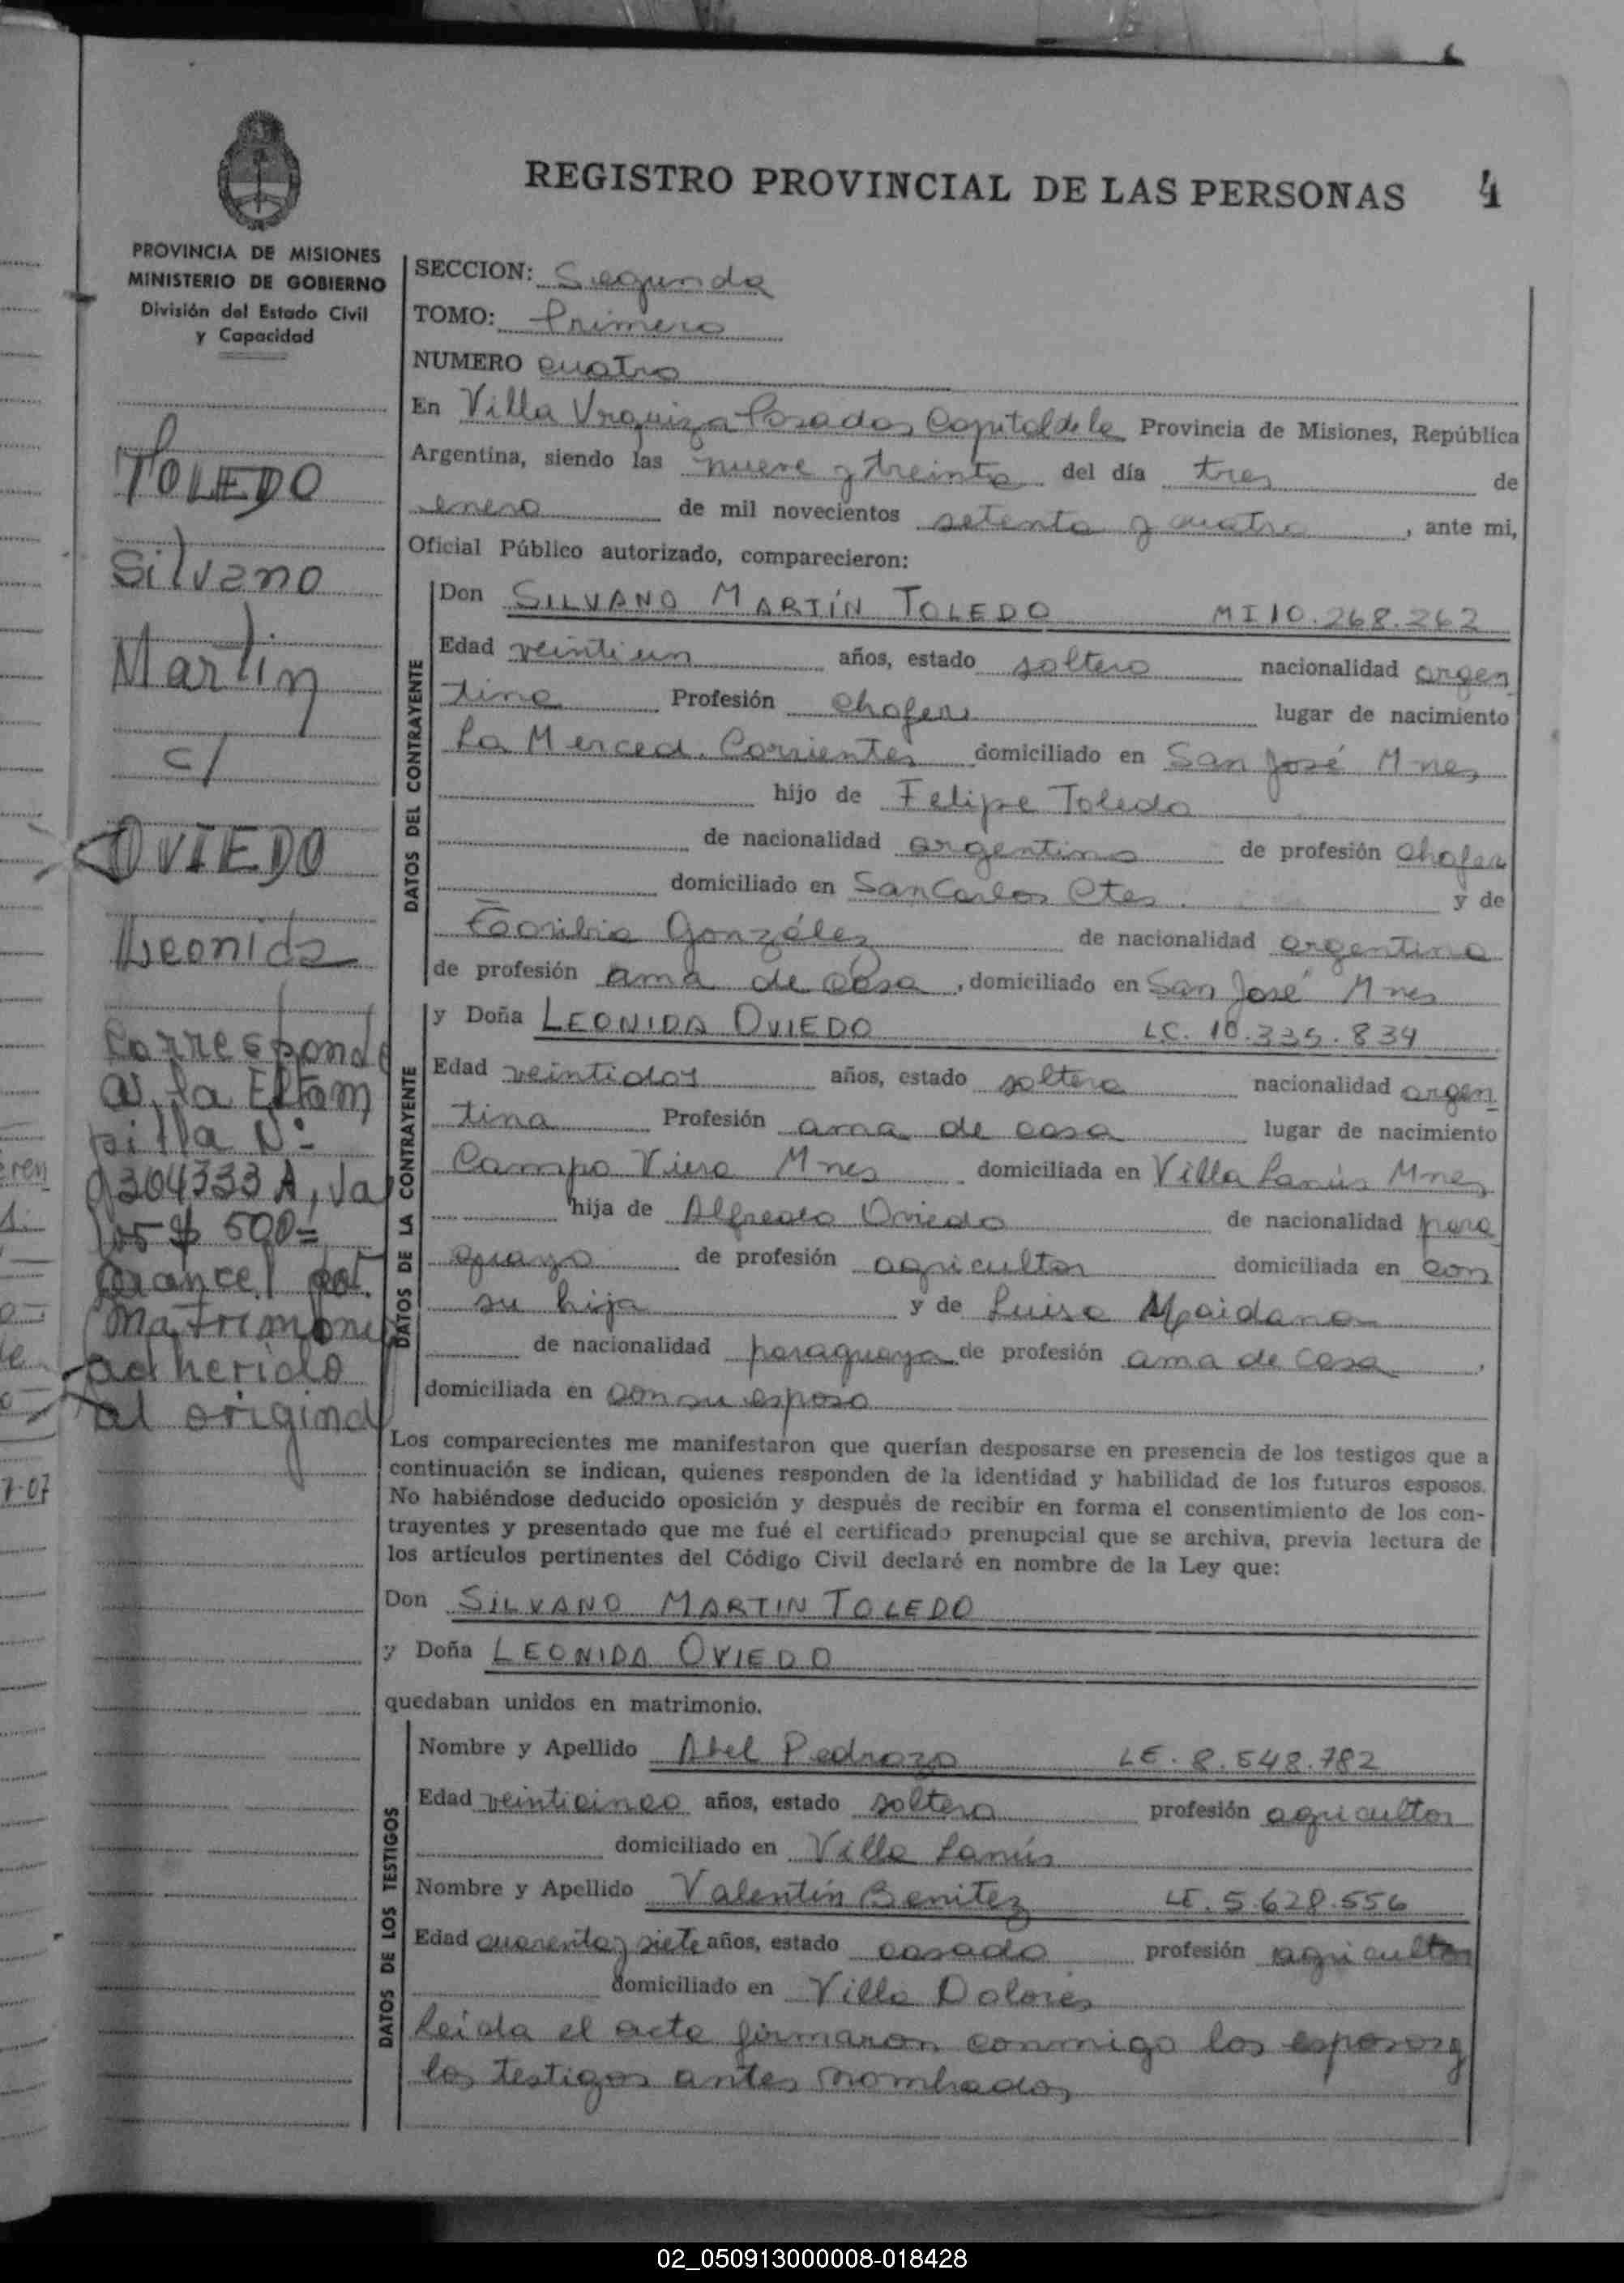 REGISTRO PROVINCIAL DE LAS PERSONAS 4
PROVINCIA DE MISIONES
MINISTERIO DE GOBIERNO
División del Estado Civil
y Capacidad
TOLEDO
Silvano
Martin
c/
OVIEDO
Leonida
Corresponde
a la Estam
pilla Nº
9304333 A, va
lor $ 500=
arancel por
matrimonio
adherido
al original
SECCION: Segunda
TOMO: Primero
NUMERO cuatro
En Villa Urquiza Posadas Capital de la Provincia de Misiones, República
Argentina, siendo las nueve y treinta del día tres de
enero de mil novecientos setenta y cuatro, ante mi,
Oficial Público autorizado, comparecieron:
DATOS DEL CONTRAYENTE
Don SILVANO MARTÍN TOLEDO MI 10.268.262
Edad veintiun años, estado soltero nacionalidad argen
tina Profesión chofer lugar de nacimiento
La Merced. Corrientes domiciliado en San José Mnes
hijo de Felipe Toledo
de nacionalidad argentino de profesión chofer
domiciliado en San Carlos Ctes. y de
González de nacionalidad argentina
de profesión ama de casa, domiciliado en San José Mnes
DATOS DE LA CONTRAYENTE
y Doña LEONIDA OVIEDO LC. 10.335.834
Edad veintidos años, estado soltera nacionalidad argen
tina Profesión ama de casa lugar de nacimiento
Campo Viera Mnes domiciliada en Villa Lanús Mnes
hija de Alfredo Oviedo de nacionalidad para
guayo de profesión agricultor domiciliada en con
su hija y de Luisa Maidana
de nacionalidad paraguaya de profesión ama de casa,
domiciliada en con su esposo
Los comparecientes me manifestaron que querían desposarse en presencia de los testigos que a
continuación se indican, quienes responden de la identidad y habilidad de los futuros esposos.
No habiéndose deducido oposición y después de recibir en forma el consentimiento de los con-
trayentes y presentado que me fué el certificado prenupcial que se archiva, previa lectura de
los artículos pertinentes del Código Civil declaré en nombre de la Ley que:
Don SILVANO MARTIN TOLEDO
y Doña LEONIDA OVIEDO
quedaban unidos en matrimonio.
DATOS DE LOS TESTIGOS
Nombre y Apellido Abel Pedrozo LE. 8.548.782
Edad veinticinco años, estado soltero profesión agricultor
domiciliado en Villa Lanús
Nombre y Apellido Valentín Benitez LE. 5.628.556
Edad cuarenta y siete años, estado casado profesión agricultor
domiciliado en Villa Dolores
Leida el acta firmaron conmigo los esposos y
los testigos antes nombrados
02_050913000008-018428